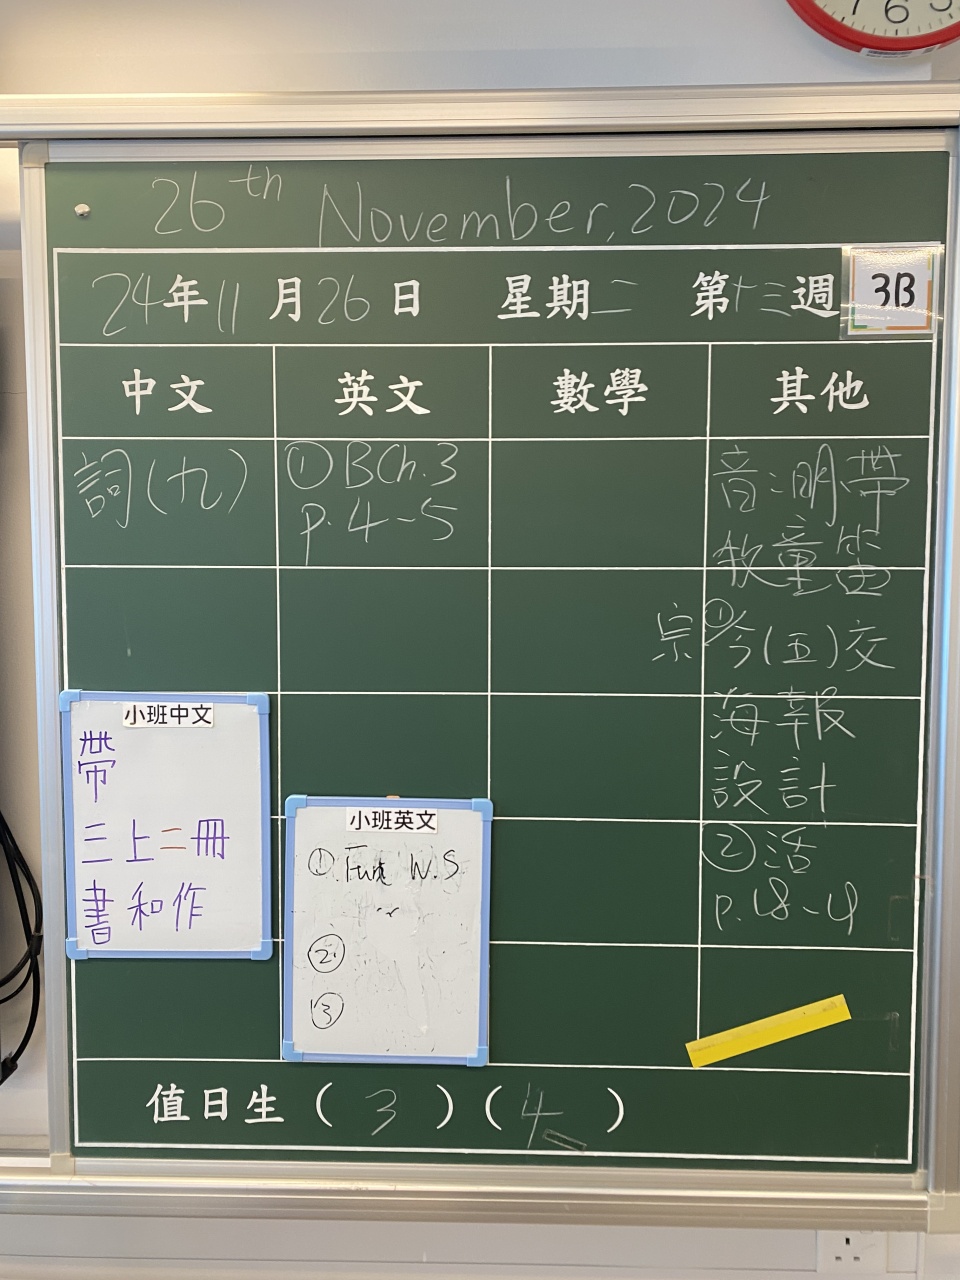 7 6 5
26th November, 2024
24年11月26日 星期二 第十三週 3B
中文 英文 數學 其他
詞(九)
① BCh.3
p.4-5
音:明帶
牧童笛
宗 ①今(五)交
海報
設計
②活
小班中文
帶
三上二冊
書和作
小班英文
① W.S.
②
③
值日生(3)(4)